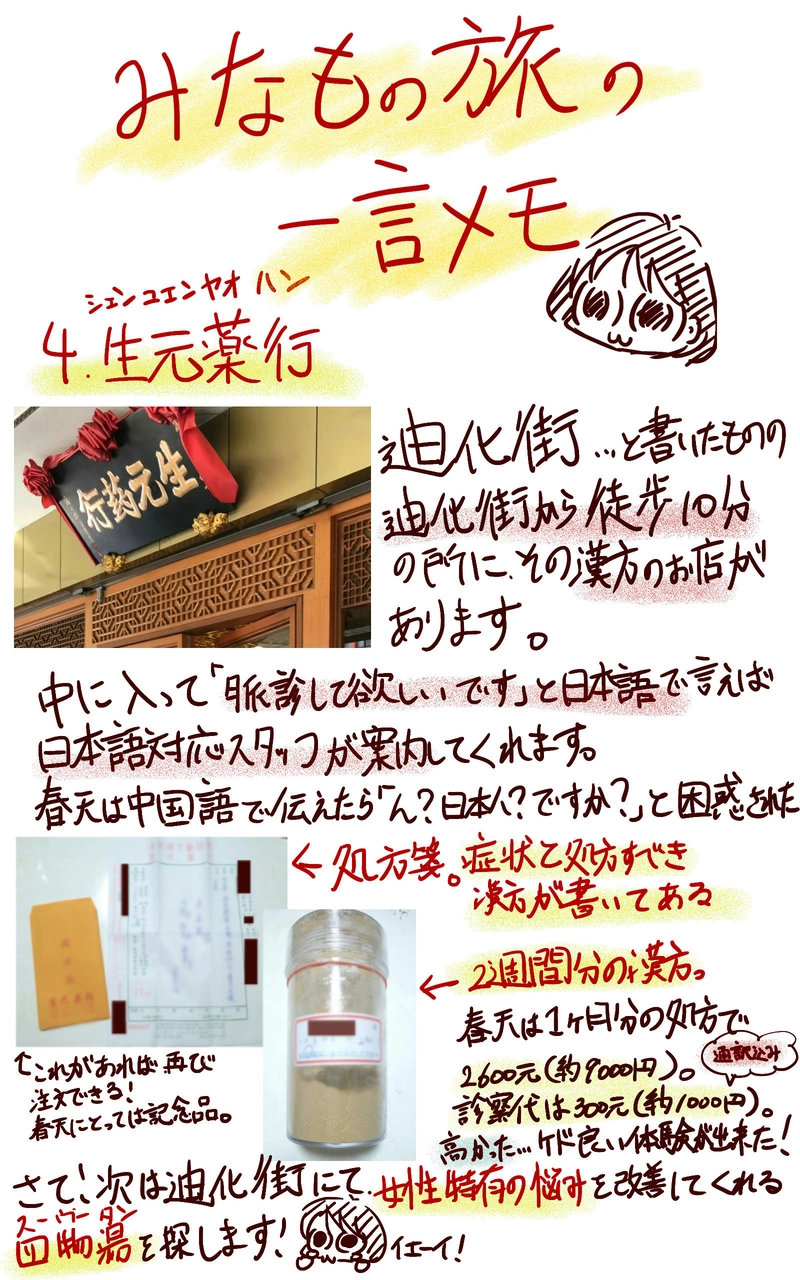 みなもの旅の
一言メモ
シェンユエンヤオハン
4.生元薬行
生元药行
迪化街…と書いたものの
迪化街から徒歩10分
の所に、その漢方のお店が
あります。
中に入って「脈診して欲しいです」と日本語で言えば
日本語対応スタッフが案内してくれます。
春天は中国語で伝えたら「ん?日本人?ですか?」と困惑された
←処方箋。症状と処方すべき
漢方が書いてある
←2週間分の漢方。
春天は1ヶ月分の処方で
2600元(約9000円)。
通訳込み
診察代は300元(約1000円)。
高かった…ケド良い体験が出来た!
↑これがあれば再び
注文できる!
春天にとっては記念品。
さて!次は迪化街にて、女性特有の悩みを改善してくれる
スーウータン
四物湯を探します!
イエーイ!